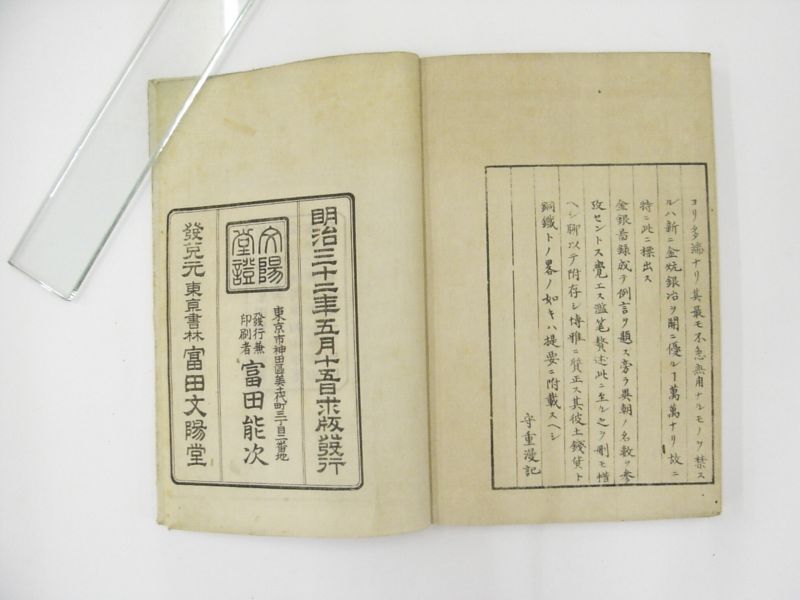 ヨリ多端ナリ其最モ不急無用ナルモノヲ禁ス
ルハ新ニ金坑銀冶ヲ開ニ優ル丁萬萬ナリ故ニ
特ニ此ニ標出ス
金銀啚錄成テ例言ヲ題ス旁ラ異朝ノ名數ヲ參
攷セントス覺エス濫筆贅述此ニ至ル之ヲ刪モ惜
ヘシ聊以テ附存シ博雅ニ贊正ス其彼土錢貨ト
銅鐵トノ畧ノ如キハ提要ニ附載スヘシ
守重漫記
明治三十二年五月十五日求版發行
文陽堂證
東京市神田區美土代町三丁目二番地
發行兼印刷者 富田能次
發兌元 東京書林 富田文陽堂